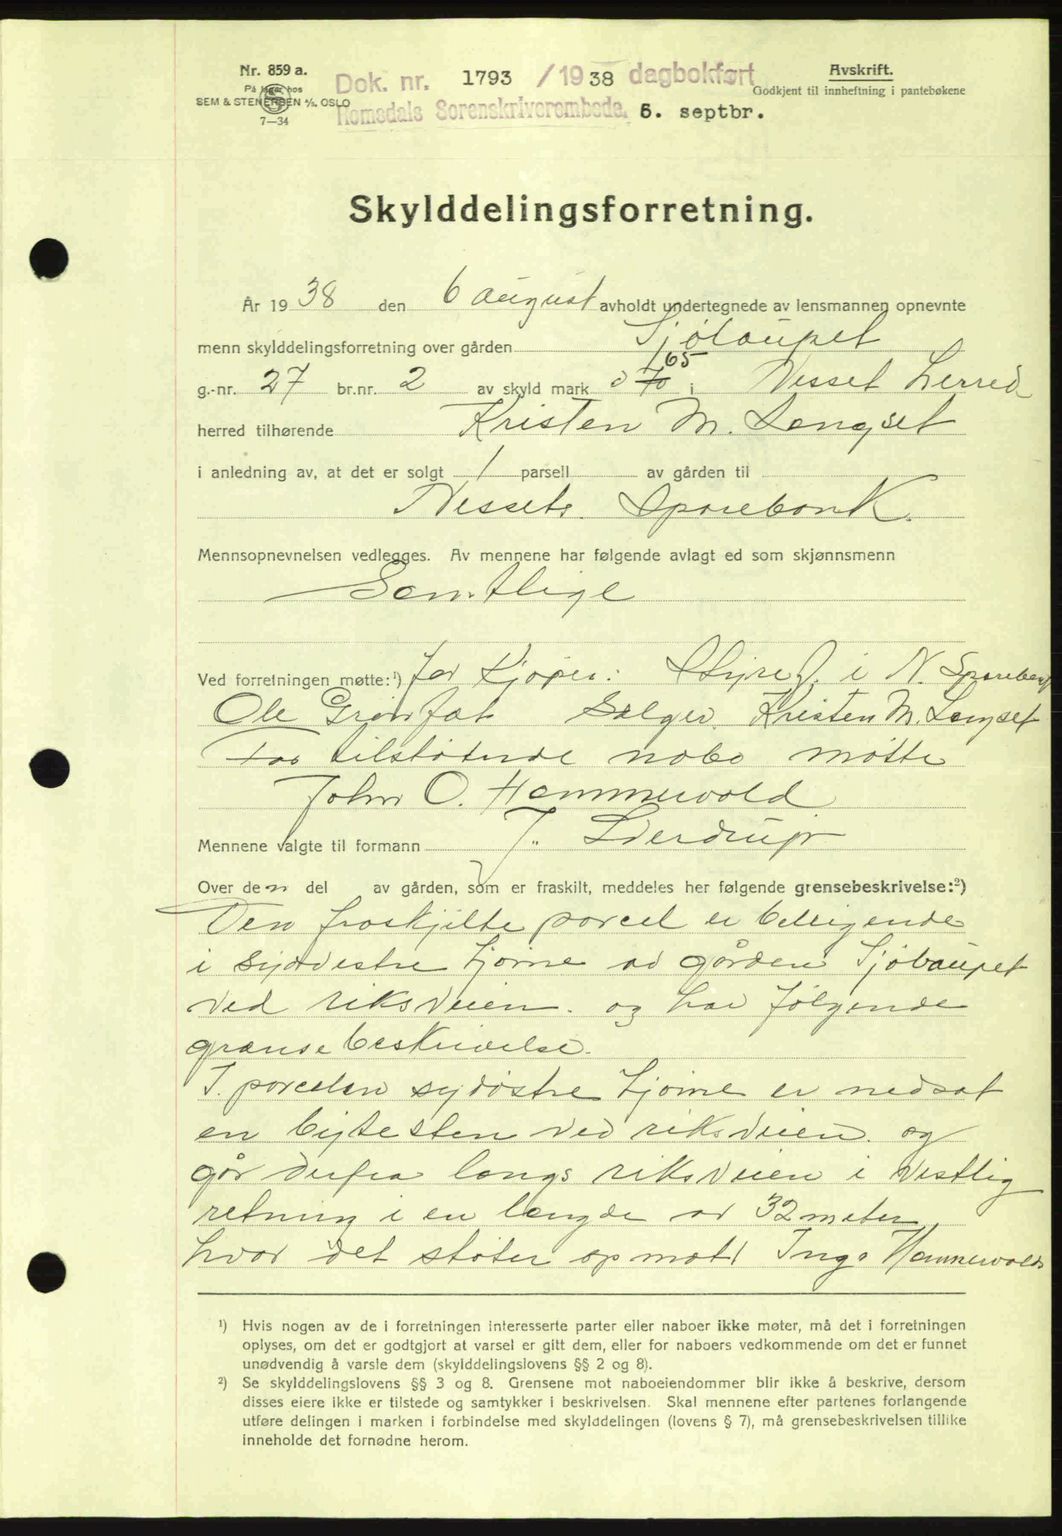 Nr. 859 a.
På lager hos
SEM & STENERSEN A/S, OSLO
7—34
Dok. nr. 1793 /1938 dagbokført
Romsdals Sorenskriverembede, 6. septbr.
Avskrift.
Godkjent til innheftning i pantebøkene
Skylddelingsforretning.
År 1938 den 6 august avholdt undertegnede av lensmannen opnevnte
menn skylddelingsforretning over gården Sjølaupet
g.-nr. 27 br.nr. 2 av skyld mark 0 65 i Nesset herred
herred tilhørende Kristen M. Lengset
i anledning av, at det er solgt 1 parsell av gården til
Nessets Sparebank.
Mennsopnevnelsen vedlegges. Av mennene har følgende avlagt ed som skjønnsmenn
Samtlige
Ved forretningen møtte:¹) for Kjøper: Styref. i N. Spareban
Ole Grønfat Selger Kristen M. Lengset
For tilstøtende nabo møtte
John O. Hammervold
Mennene valgte til formann J. Liedrup
Over den del av gården, som er fraskilt, meddeles her følgende grensebeskrivelse:²)
Den fraskjilte parcel er beliigende
i sydvestre hjørne av gården Sjølaupet
ved riksveien og har følgende
grænsebeskrivelse.
I parcelen sydøstre hjørne er nedsat
en bytesten ved riksveien og
går derfra langs riksveien i vestlig
retning i en længde av 32 meter
hvor det støter op mot Inga Hammervolds
¹) Hvis nogen av de i forretningen interesserte parter eller naboer ikke møter, må det i forretningen
oplyses, om det er godtgjort at varsel er gitt dem, eller for naboers vedkommende om det er funnet
unødvendig å varsle dem (skylddelingslovens §§ 2 og 8).
²) Se skylddelingslovens §§ 3 og 8. Grensene mot naboeiendommer blir ikke å beskrive, dersom
disses eiere ikke er tilstede og samtykker i beskrivelsen. Skal mennene efter partenes forlangende
utføre delingen i marken i forbindelse med skylddelingen (lovens § 7), må grensebeskrivelsen tillike
inneholde det fornødne herom.